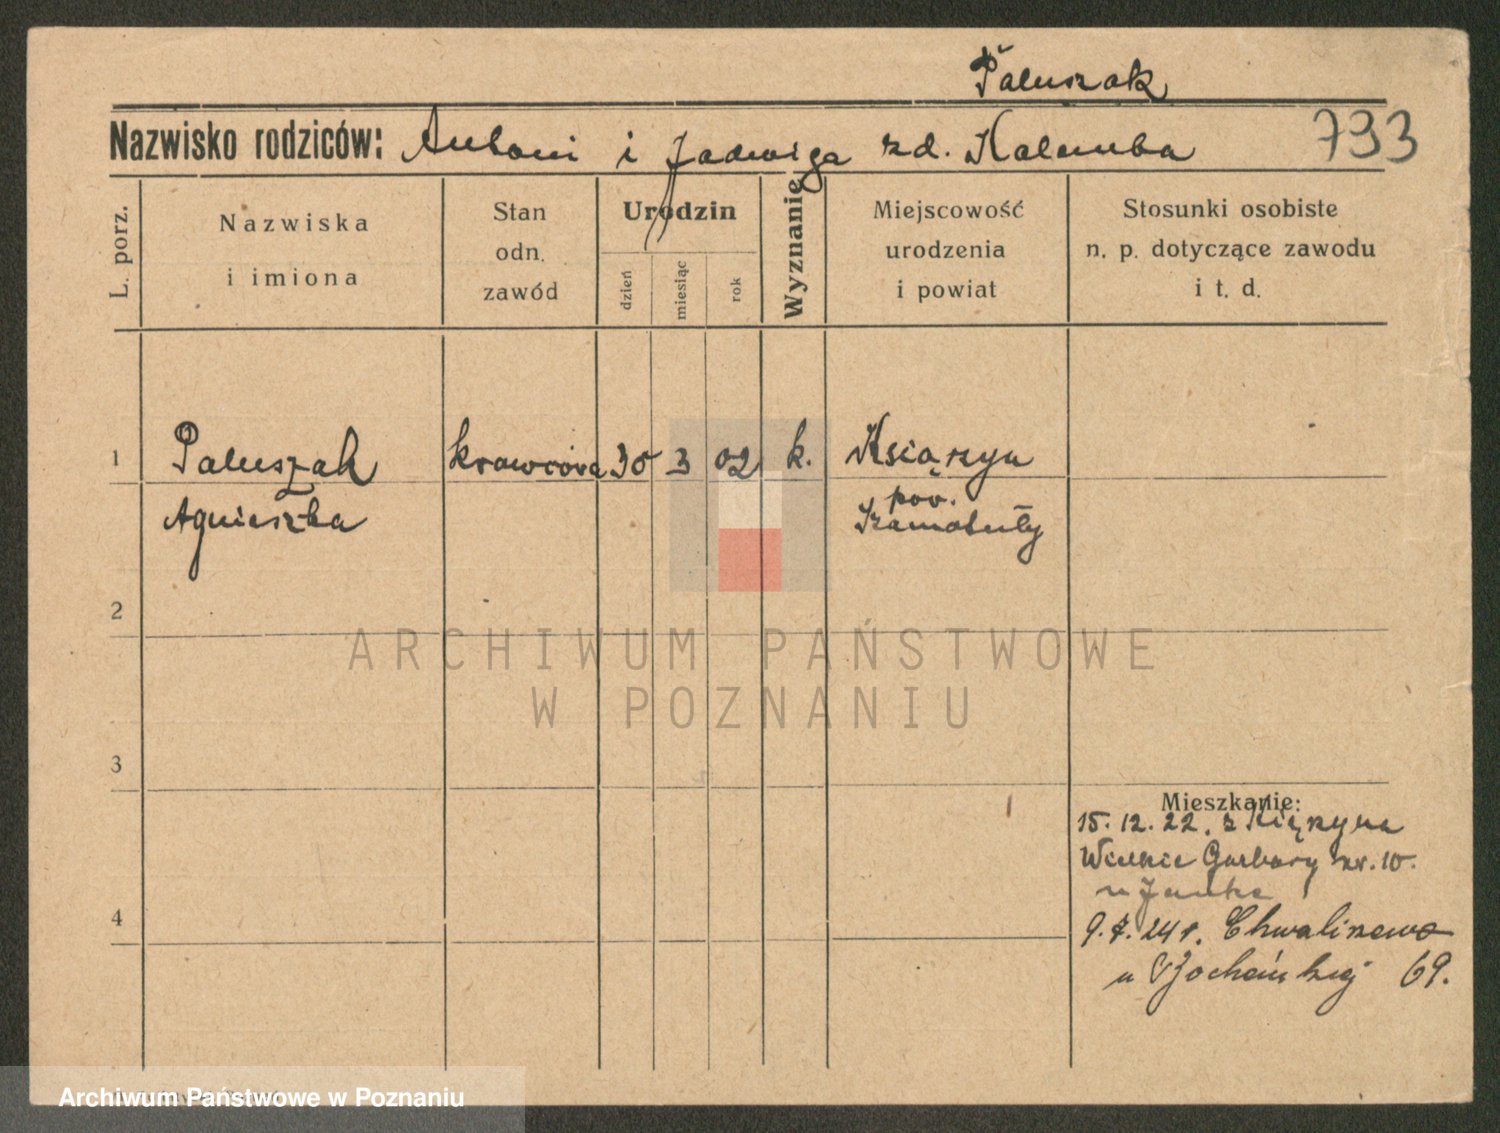 Paluszak
Nazwisko rodziców: Antoni i Jadwiga zd. Kalemba 793
L. porz.
Nazwiska
i imiona
Stan
odn.
zawód
Urodzin
dzień
miesiąc
rok
Wyznanie
Miejscowość
urodzenia
i powiat
Stosunki osobiste
n. p. dotyczące zawodu
i t. d.
1 Paluszak krawcowa 30 3 02 k. Książyn
Agnieszka
pow.
Szamotuły
2
3
Mieszkanie:
15. 12. 22. z
Wielkie Garbary nr. 10.
4
u
9. 7. 24 r. Chwaliszewo
u 69.
ARCHIWUM PAŃSTWOWE
W POZNANIU
Archiwum Państwowe w Poznaniu